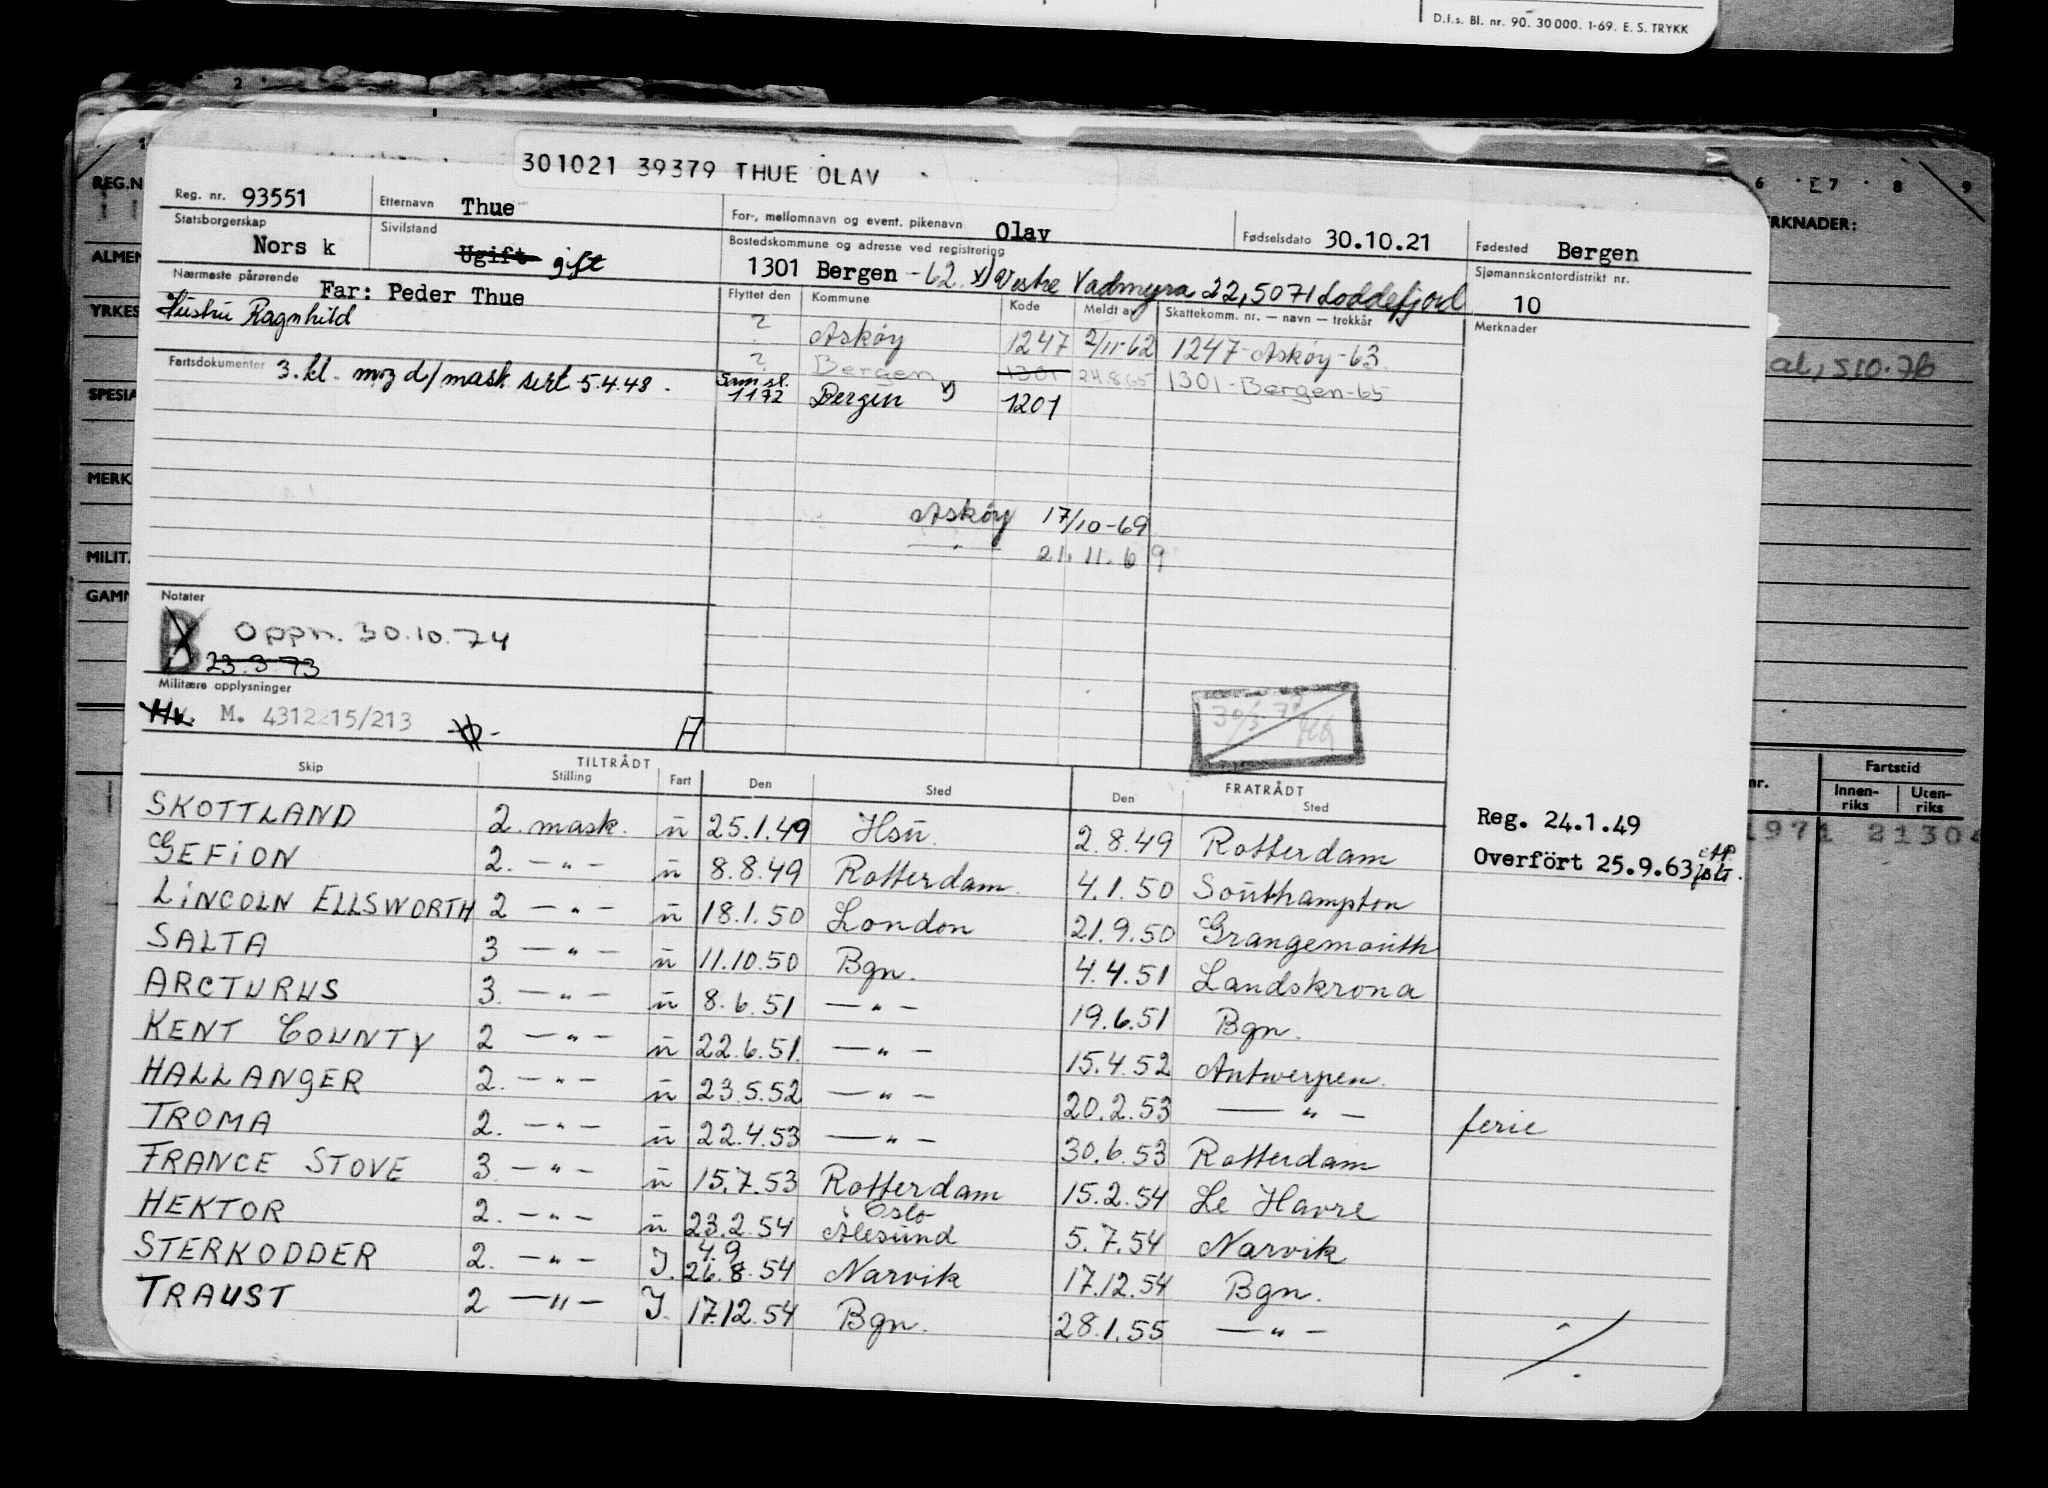 D.f.s. Bl. nr. 90. 30 000. 1-69. E. S. TRYKK
2
301021 39379 THUE OLAV
REG.N
ALMEN
YRKES
SPESIA
MERK
MILIT
GAMN
6 7 8 9
RKNADER:
Reg. nr. 93551 Etternavn Thue For-, mellomnavn og event. pikenavn Olav Fødselsdato 30.10.21 Fødested Bergen
Statsborgerskap Nors k Sivilstand Ugift gift Bostedskommune og adresse ved registrering 1301 Bergen -62. x) Vestre Vadmyra 22, 5071 Loddefjord Sjømannskontordistrikt nr. 10
Nærmeste pårørende Far: Peder Thue
Hustru Ragnhild
Flyttet den Kommune Kode Meldt av Skattekomm. nr. — navn — trekkår Merknader
? Askøy 1247 2/11-62 1247-Askøy-63.
? Bergen 1301 24.8.65 1301-Bergen-65
Fartsdokumenter 3. kl. mask sert 5.4.48.
1172 Bergen x) 1201
Askøy 17/10-69
— " — 21.11.69
Notater
B Oppn. 30.10.74
23.3.73
Militære opplysninger
Hv. M. 4312215/213 A
Skip TILTRÅDT Stilling Fart Den Sted FRATRÅDT Den Sted
SKOTTLAND 2. mask. u 25.1.49 Hsu. 2.8.49 Rotterdam
GEFION 2. — " — u 8.8.49 Rotterdam. 4.1.50 Southampton
LINCOLN ELLSWORTH 2 — " — u 18.1.50 London 21.9.50 Grangemouth
SALTA 3 — " — u 11.10.50 Bgn. 4.4.51 Landskrona
ARCTURUS 3. — " — u 8.6.51 — " — 19.6.51 Bgn.
KENT COUNTY 2 — " — u 22.6.51. — " — 15.4.52 Antwerpen.
HALLANGER 2. — " — u 23.5.52 — " — 20.2.53 — " — ferie
TROMA 2. — " — u 22.4.53 — " — 30.6.53 Rotterdam
FRANCE STOVE 3. — " — u 15.7.53 Rotterdam 15.2.54 Le Havre
HEKTOR 2. — " — u 23.2.54 Oslo Ålesund 5.7.54 Narvik
STERKODDER 2. — " — I. 4.9 26.8.54 Narvik 17.12.54 Bgn.
TRAUST 2 — " — I. 17.12.54 Bgn. 28.1.55 — " —
Reg. 24.1.49
Overfört 25.9.63
nr. Fartstid
Innen-riks Uten-riks
1971 21304